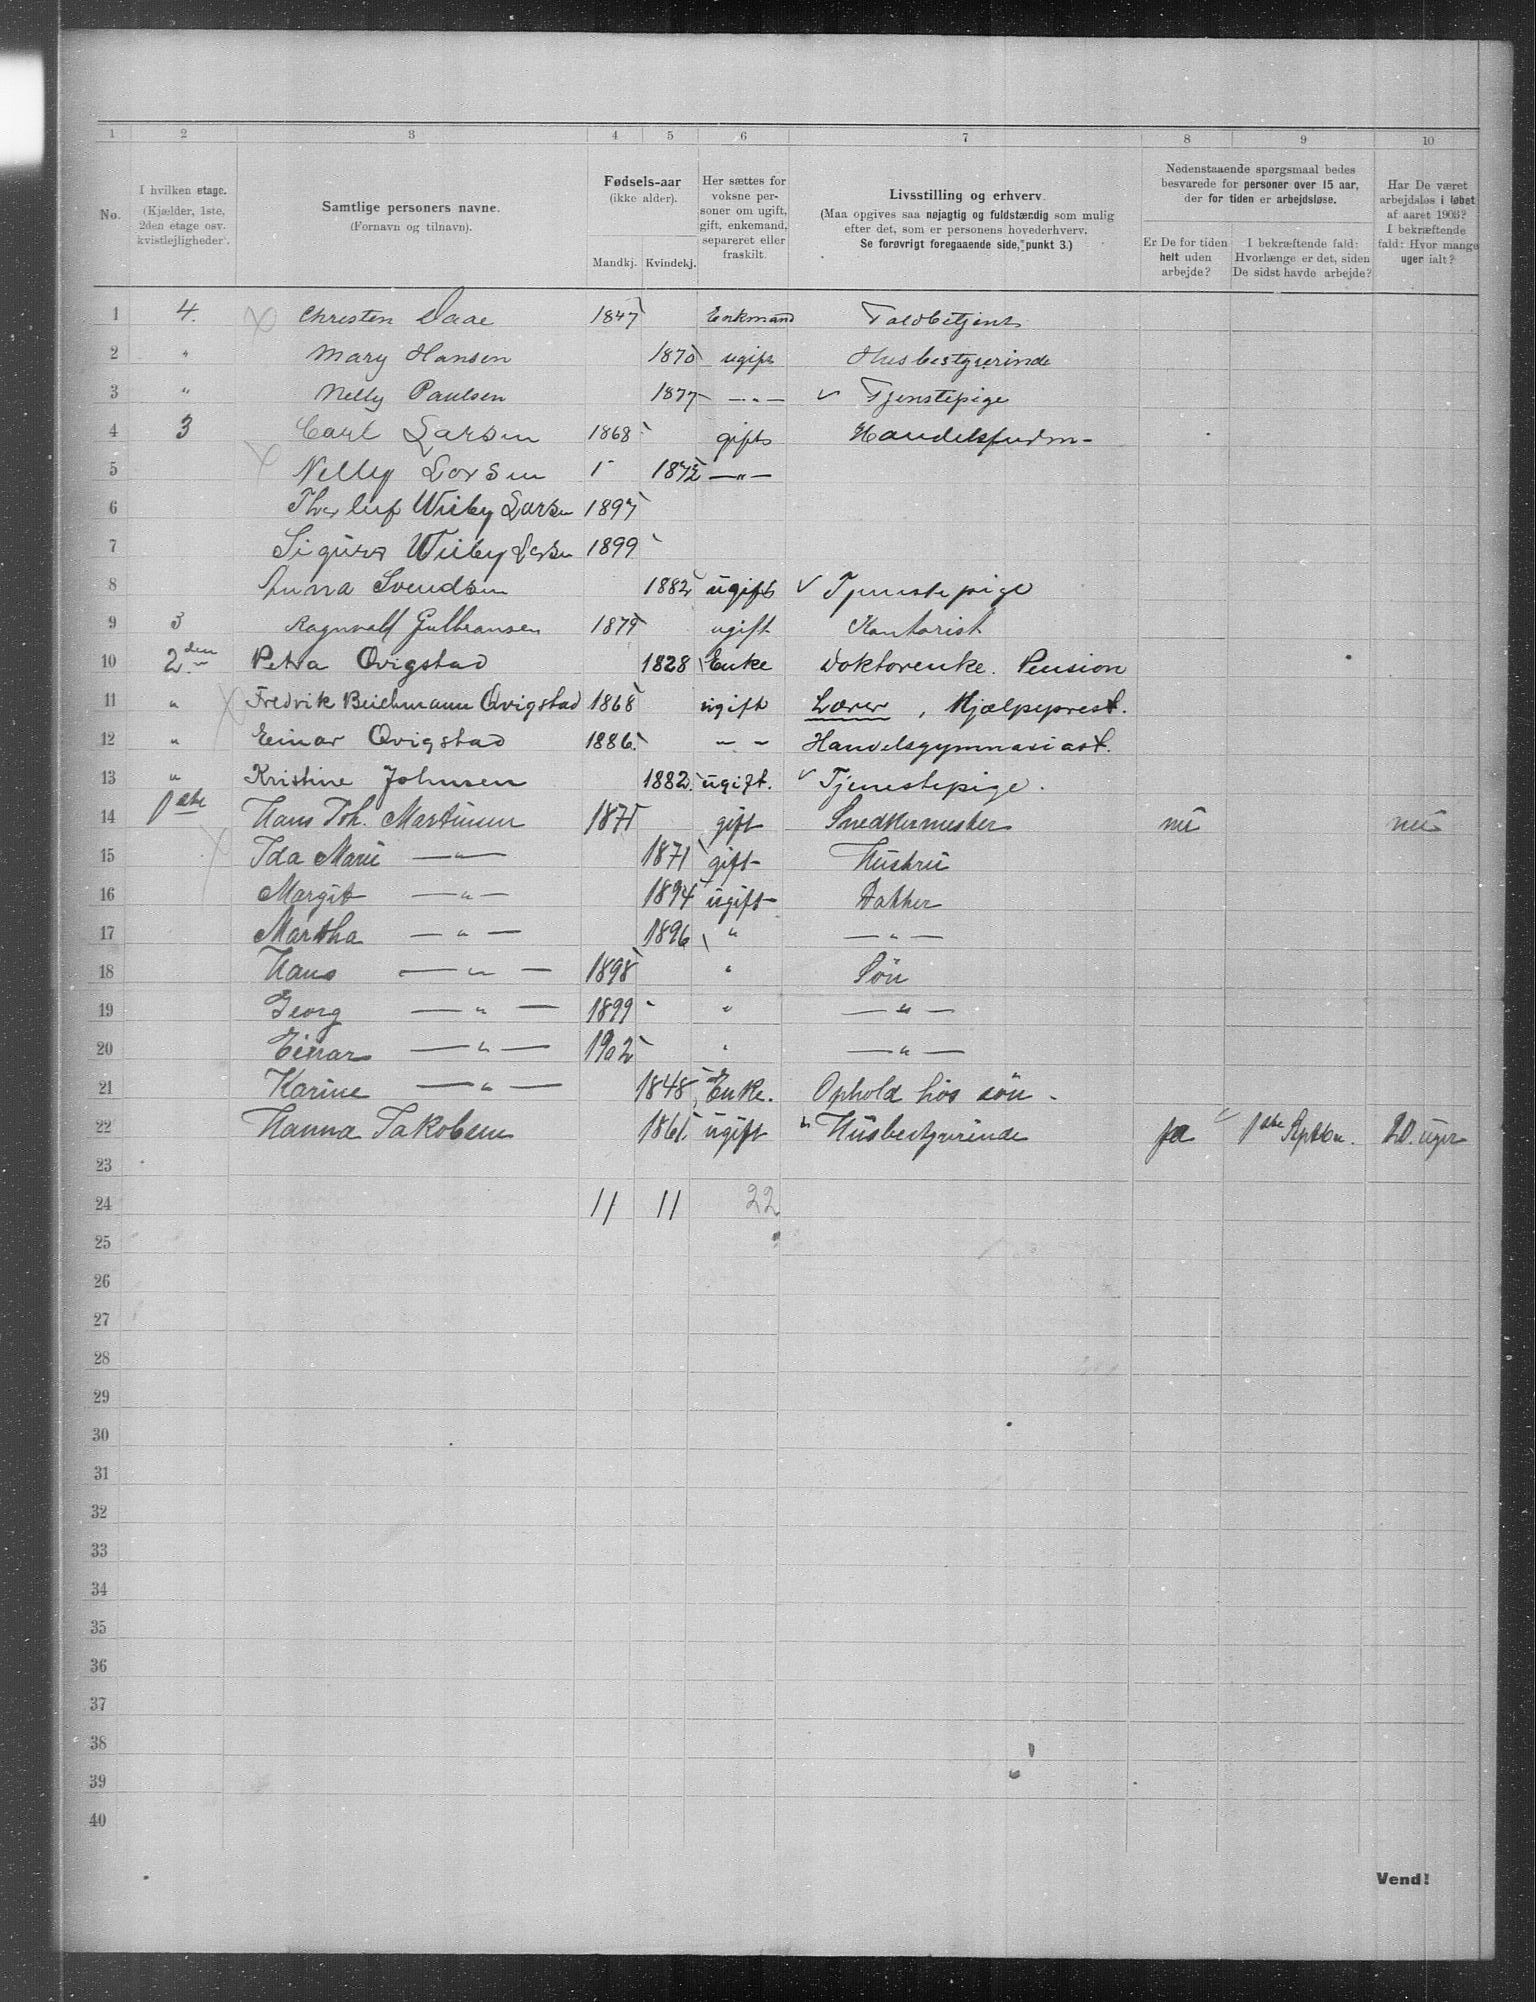 1 2 3 4 5 6 7 8 9 10
No.
I hvilken etage.
(Kjælder, 1ste,
2den etage osv.
kvistlejligheder).
Samtlige personers navne.
(Fornavn og tilnavn).
Fødsels-aar
(ikke alder).
Mandkj. Kvindekj.
Her sættes for
voksne per-
soner om ugift,
gift, enkemand,
separeret eller
fraskilt.
Livsstilling og erhverv.
(Maa opgives saa nøjagtig og fuldstændig som mulig
efter det, som er personens hovederhverv.
Se forøvrigt foregaaende side, punkt 3.)
Nedenstaaende spørgsmaal bedes
besvarede for personer over 15 aar,
der for tiden er arbejdsløse.
Er De for tiden
helt uden
arbejde?
I bekræftende fald:
Hvorlænge er det, siden
De sidst havde arbejde?
Har De været
arbejdsløs i løbet
af aaret 1903?
I bekræftende
fald: Hvor mange
uger ialt?
1 4. Christen Daae 1847 Enkmand Toldbetjent
2 " Mary Hansen 1870 ugift Husbestyrerinde
3 " Nelly Paulsen 1877 —"— Tjenstepige
4 3 Carl Larsen 1868 gift Handelsfuldm-
5 Nelly Larsen 1872 —"—
6 Thorleif Wiiby Larsen 1897
7 Sigurd Wiiby Larsen 1899
8 Anna Svendsen 1882 ugift Tjenstepige
9 3 Ragnvald Gulbransen 1879 ugift Kontorist
10 2den Petra Qvigstad 1828 Enke Doktorenke. Pension
11 " Fredrik Beichmann Qvigstad 1868 ugift Lærer, Hjælpeprest.
12 " Einar Qvigstad 1886. — " — Handelsgymnasiast.
13 " Kristine Johnsen 1882. ugift. Tjenestepige.
14 1ste Hans Joh. Martinsen 1871 gift Snedkermester nei nei
15 Ida Marie —"— 1871 gift Hustru
16 Margit —"— 1894 ugift Datter
17 Martha —"— 1896 " —"—
18 Hans —"— 1898 " Søn
19 Georg —"— 1899 " —"—
20 Einar —"— 1902 " —"—
21 Karine —"— 1848 Enke. Ophold hos søn.
22 Hanna Jakobsen 1861. ugift Husbestyrerinde ja 1ste Septbr. 20. uger
23
24 11 11 22
25
26
27
28
29
30
31
32
33
34
35
36
37
38
39
40
Vend!